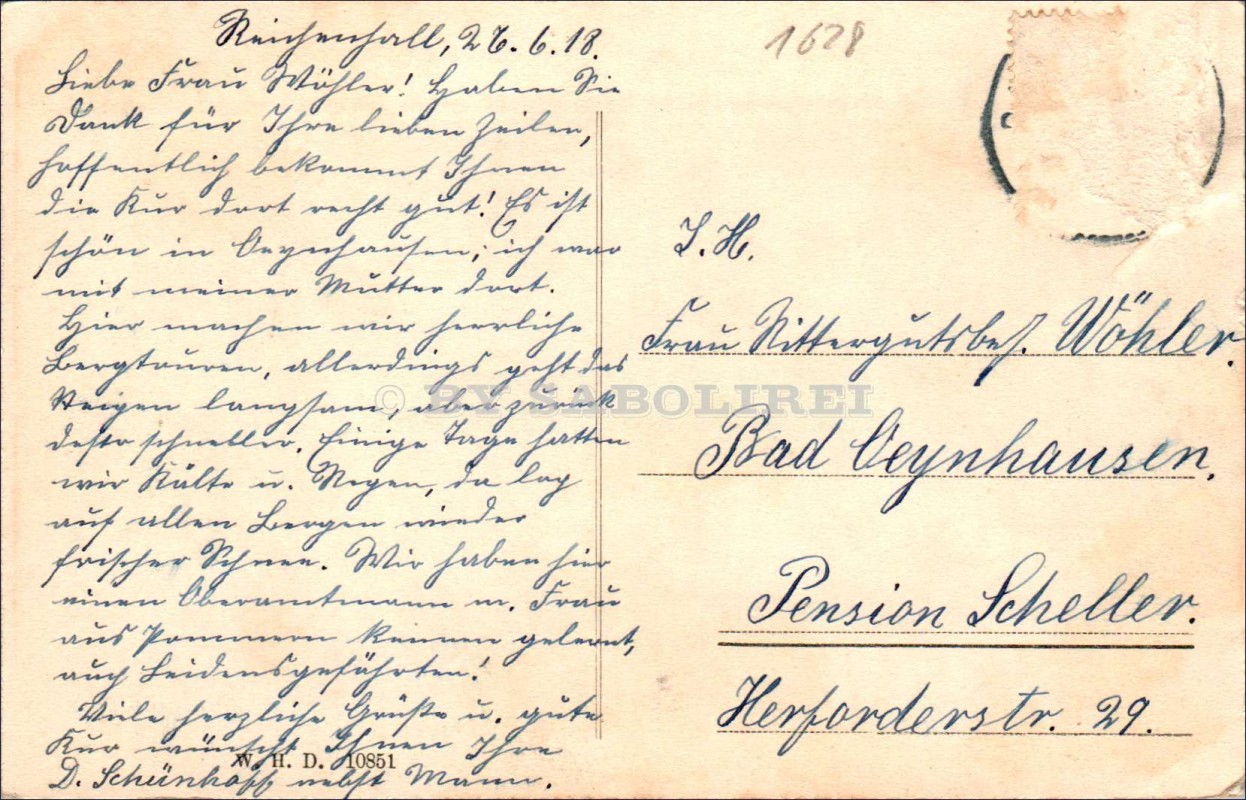 Reichenhall, 26.6.18.
Liebe Frau Wöhler! Haben Sie
Dank für Ihre lieben Zeilen,
hoffentlich bekommt Ihnen
die Kur dort recht gut! Es ist
schön in Oeynhausen; ich war
mit meiner Mutter dort.
Hier machen wir herrliche
Bergtouren, allerdings geht das
Steigen langsam, aber zurück
desto schneller. Einige Tage hatten
wir Kälte u. Regen, da lag
auf allen Bergen wieder
frischer Schnee. Wir haben hier
einen Oberamtmann m. Frau
aus Pommern kennen gelernt,
auch Leidensgefährten!
Viele herzliche Grüße u. gute
Kur wünscht Ihnen Ihre
D. Schünhoff nebst Mann.
W. H. D. 10851
1628
I. H.
Frau Rittergutsbes. Wöhler.
Bad Oeynhausen.
Pension Scheller.
Herforderstr. 29.
© BY SABOLIREI